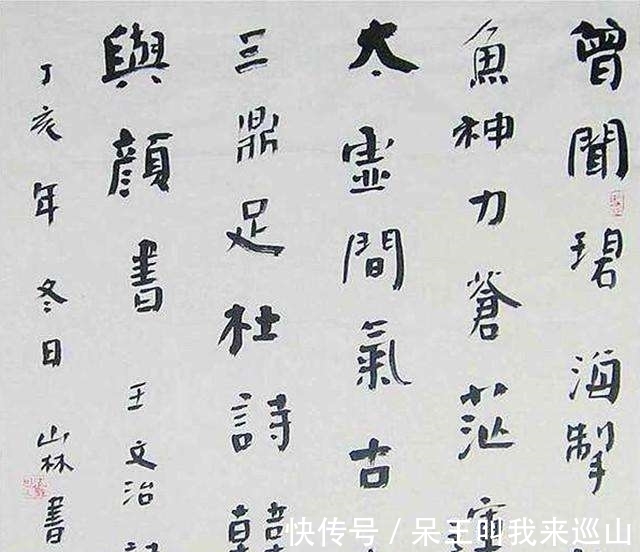 曾聞碧海掣
魚神力蒼茫
太虛間氣古
三鼎足杜詩韓
與顏書 王文治
丁亥年冬日 山林書
快传号 / 呆王叫我来巡山